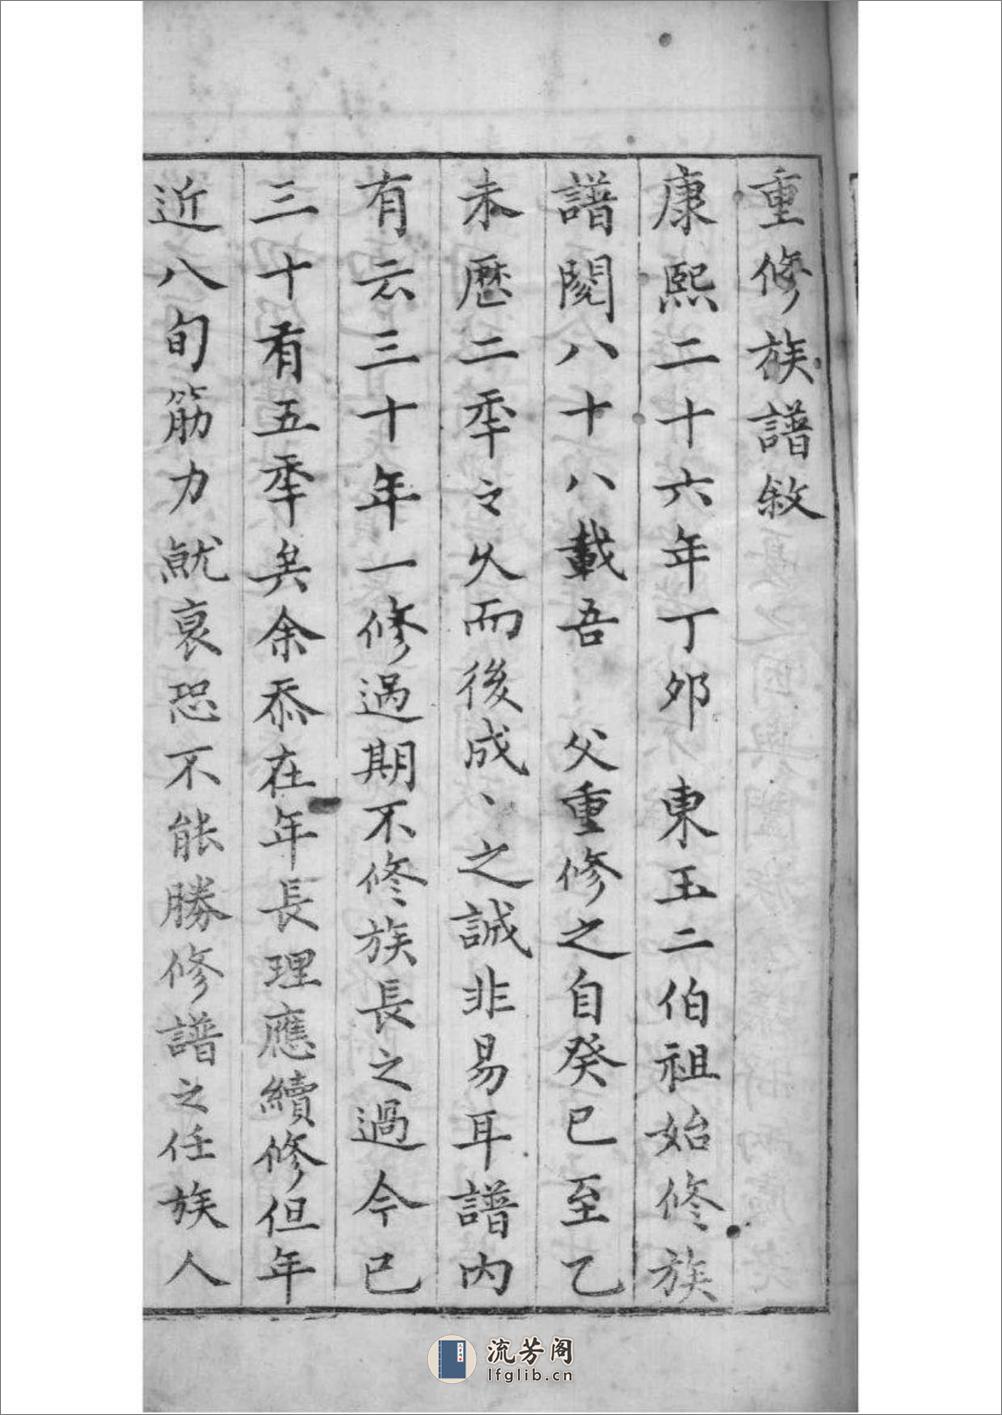 重修族譜敘
康熙二十六年丁夘　東玉二伯祖始修族
譜閱八十八載吾　父重修之自癸巳至乙
未歷二秊々乆而後成、之誠非易耳譜内
有云三十年一修過期不修族長之過今已
三十有五秊矣余忝在年長理應續修但年
近八旬筋力就衰恐不能勝修譜之任族人
流芳阁
lfglib.cn